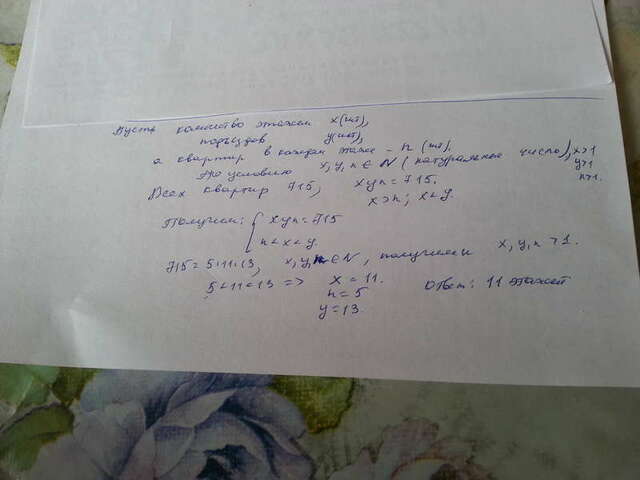 Пусть количество этажей x(шт),
подъездов y(шт),
а квартир в каждом этаже - n (шт).
По условию x, y, n ∈ N (натуральное число), x>1
y>1
n>1.
Всех квартир 715, xyn = 715.
x > n; x < y.
Получим: { xyn = 715
n < x < y.
715 = 5·11·13, x, y, n ∈ N, получим x, y, n > 1.
5 < 11 < 13 => x = 11.
n = 5
y = 13.
Ответ: 11 этажей